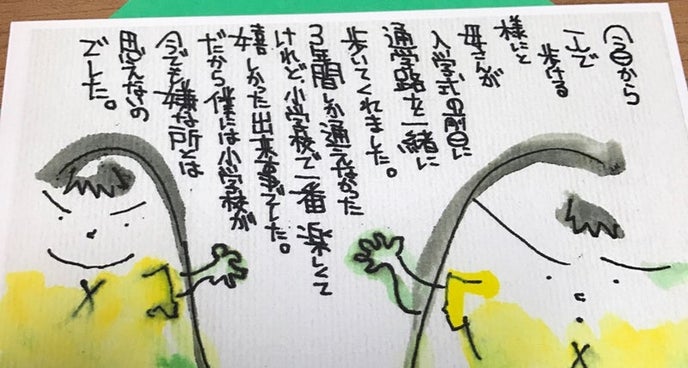 今日から
一人で
歩ける
様にと
母さんが
入学式の前日に
通学路を一緒に
歩いてくれました。
3年間しか通えなかった
けれど、小学校で一番楽しくて
嬉しかった出来事でした。
だから僕には小学校が
今でも嫌な所とは
思えないの
でした。